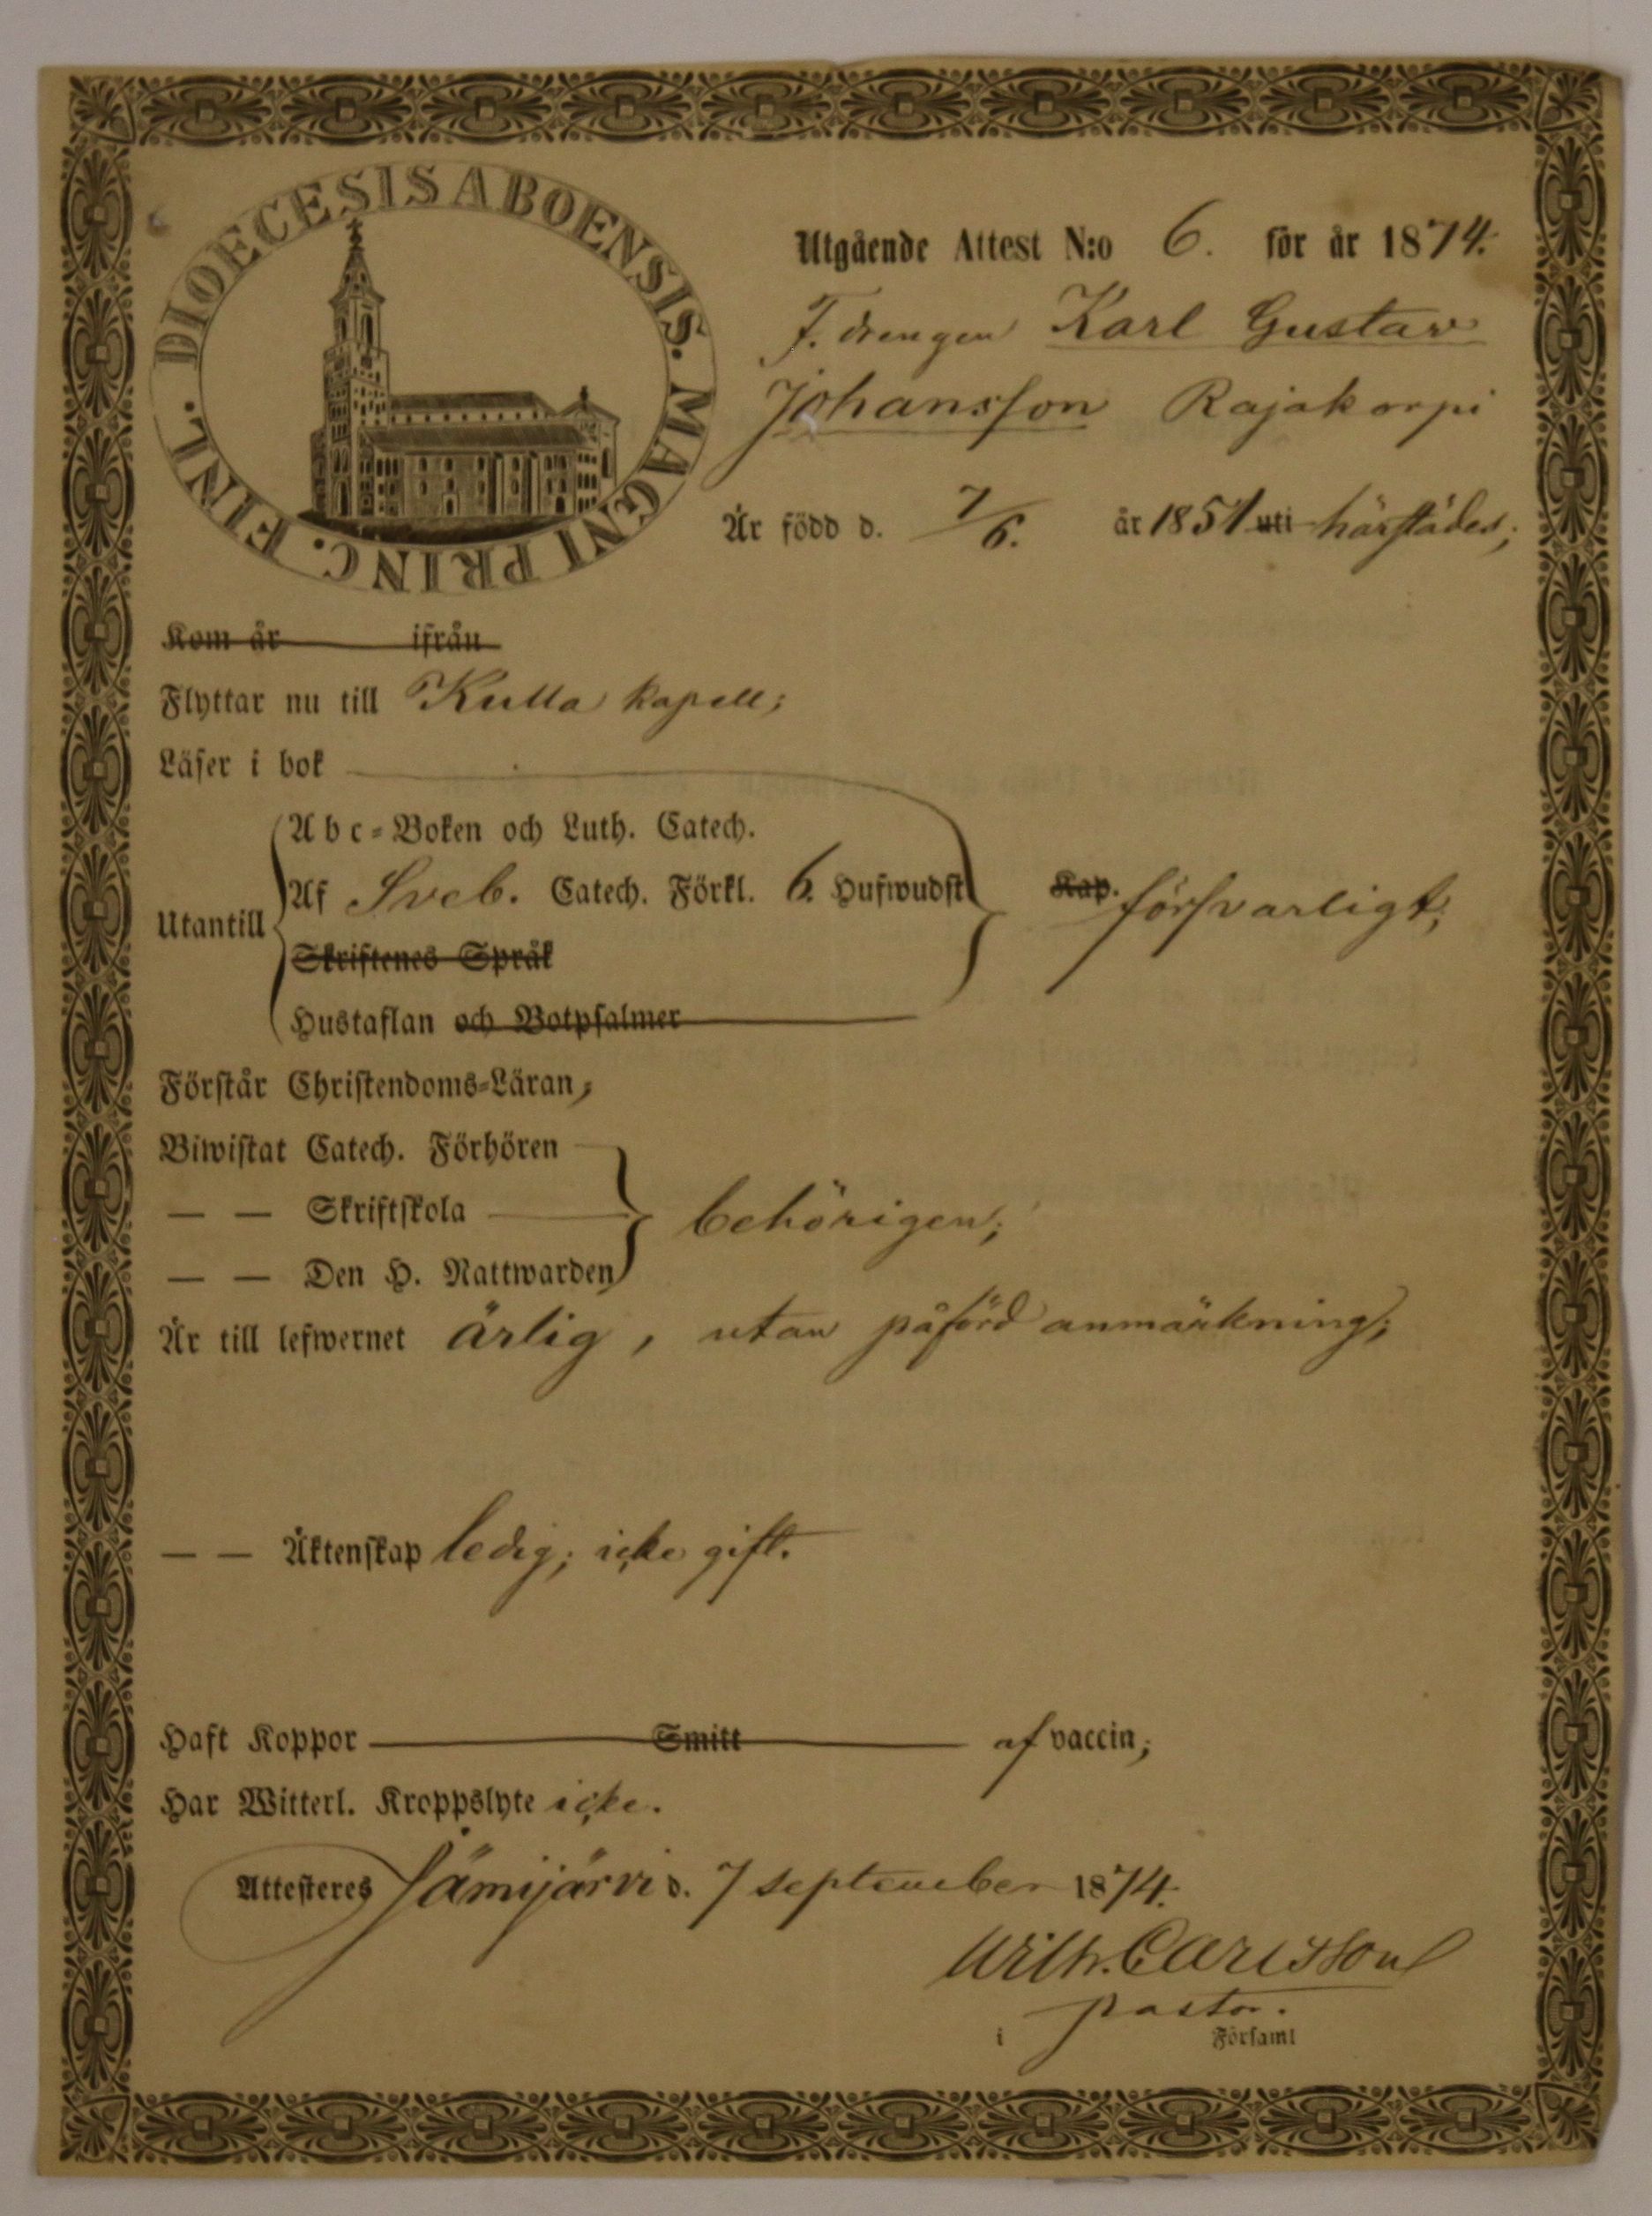 DIOECESIS ABOENSIS. MAGNI PRINC. FINL.
Utgående Attest N:o 6. för år 1874.
F. drengen Karl Gustav
Johansson Rajakorpi
Är född d. 7/6. år 1851 uti härstädes;
Kom år ifrån
Flyttar nu till Kulla kapell;
Läser i bok
Abc-Boken och Luth. Catech.
Utantill Af Sveb. Catech. Förkl. 6. Hufwudst Kap. försvarligt;
Skriftenes Språk
Hustaflan och Botpsalmer
Förstår Christendoms-Läran;
Biwistat Catech. Förhören
— — Skriftskola behörigen;
— — Den H. Nattwarden
Är till lefwernet ärlig, utan påförd anmärkning;
— — Äktenskap ledig; icke gift.
Haft Koppor Smitt af vaccin;
Har Witterl. Kroppslyte icke.
Attesteres Jämijärvi d. 7 september 1874.
Wilh. Carlsson
pastor.
i Församl